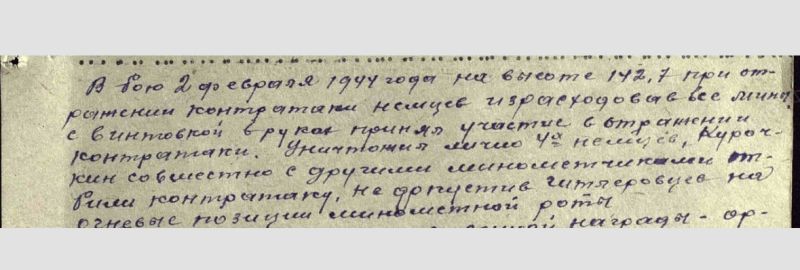 В бою 2 февраля 1944 года на высоте 142,7 при от-
ражении контратаки немцев израсходовав все мины
с винтовкой в руках принял участие в отражении
контратаки. Уничтожил лично 4х немцев, Куроч-
кин совместно с другими минометчиками от-
били контратаку, не допустив гитлеровцев на
огневые позиции минометной роты
награды - ор-